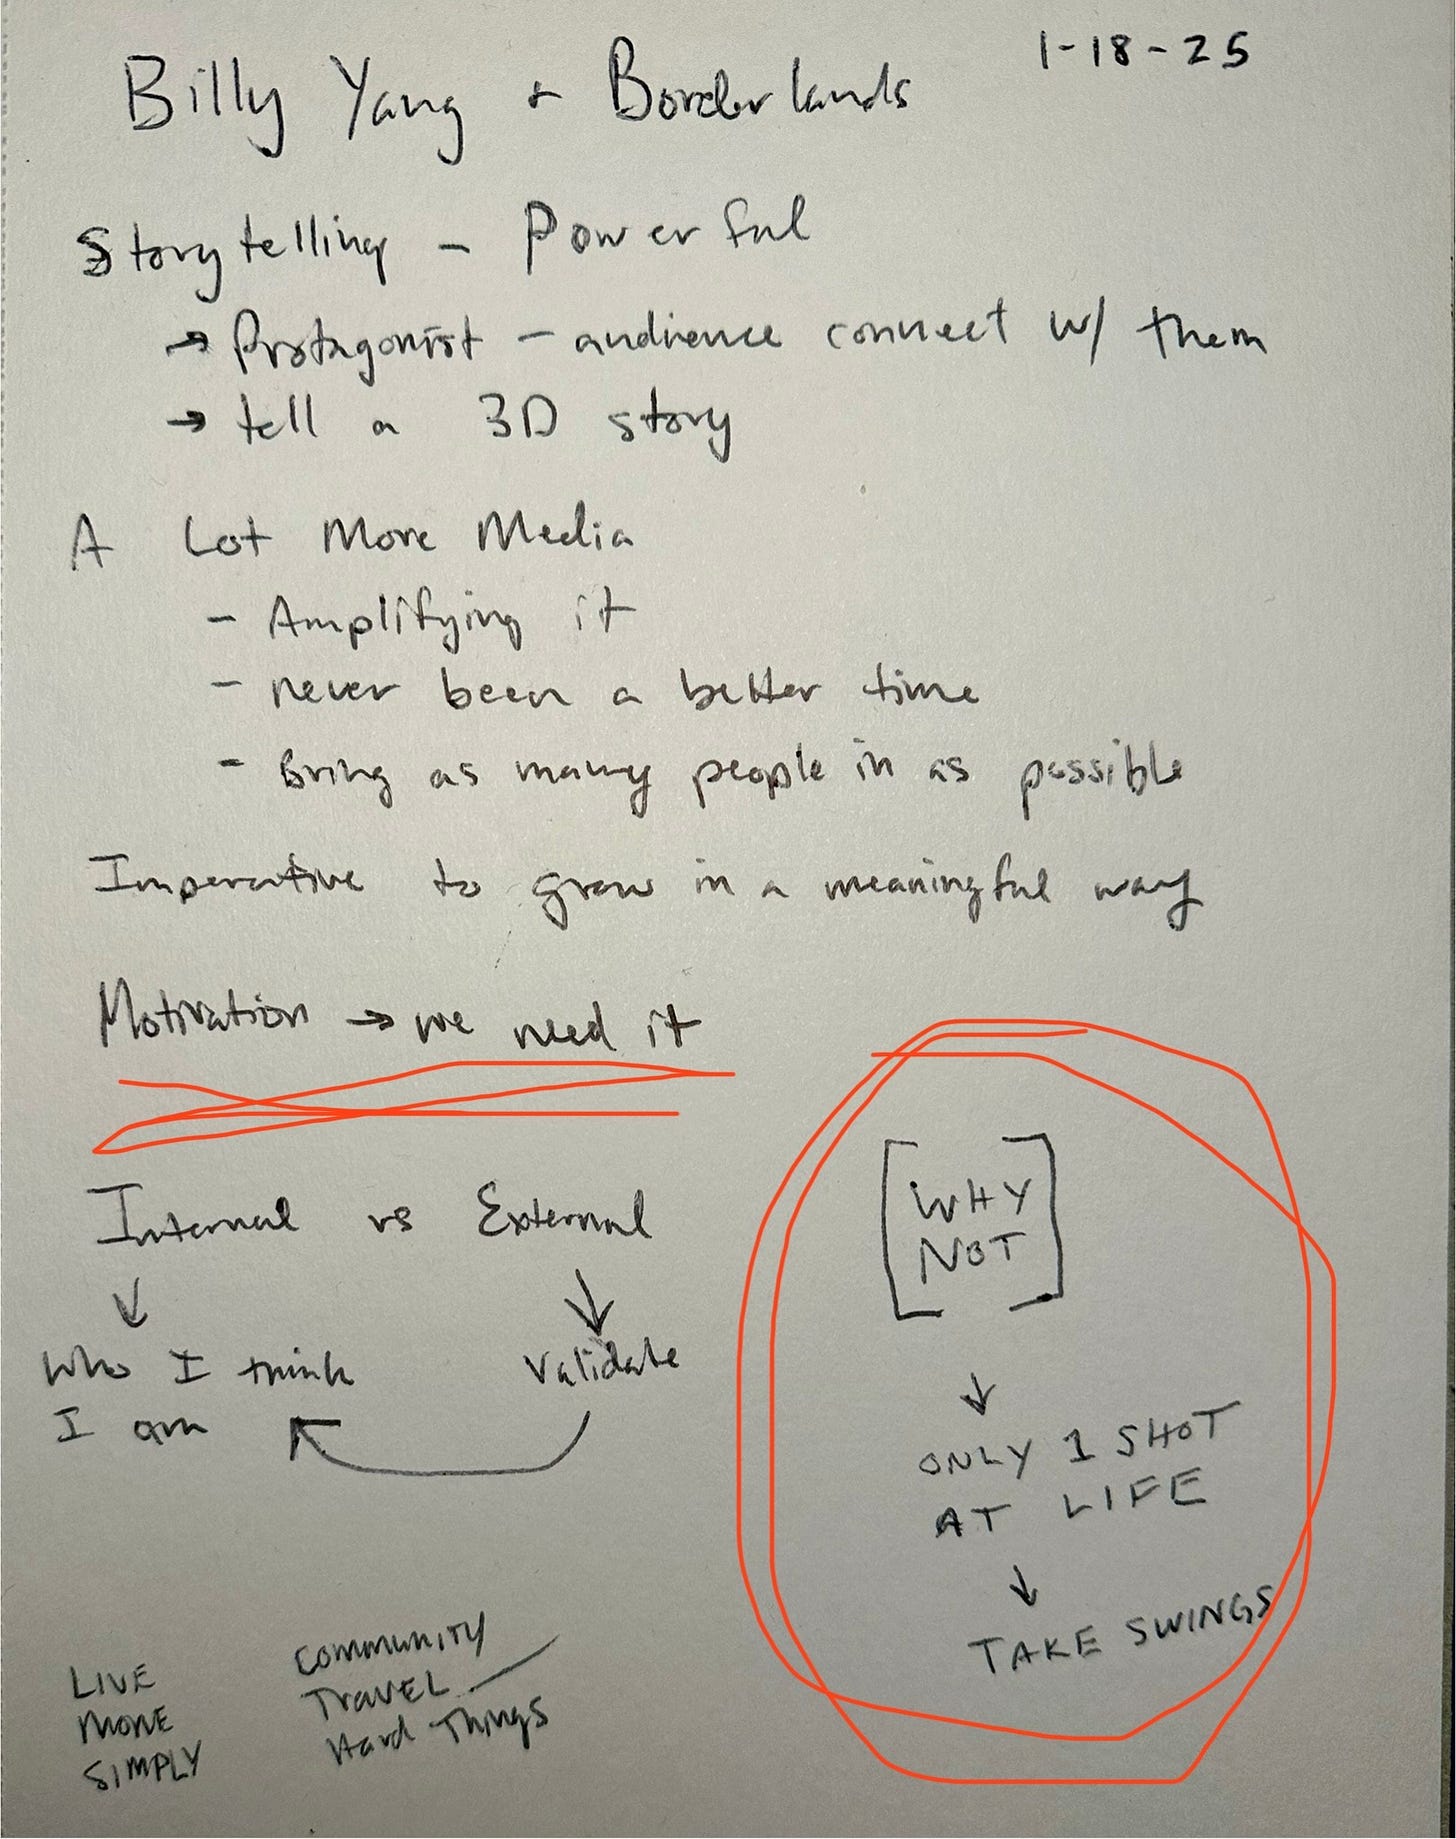 1-18-25
Billy Yang + Borderlands
Storytelling - Powerful
→ Protagonist - audience connect w/ them
→ tell a 3D story
A Lot More Media
- Amplifying it
- never been a better time
- Bring as many people in as possible
Imperative to grow in a meaningful way
Motivation → we need it
Internal vs External
Who I think
I am
Validate
[WHY
NOT]
ONLY 1 SHOT
AT LIFE
TAKE SWINGS
LIVE
MORE
SIMPLY
COMMUNITY
TRAVEL
Hard Things